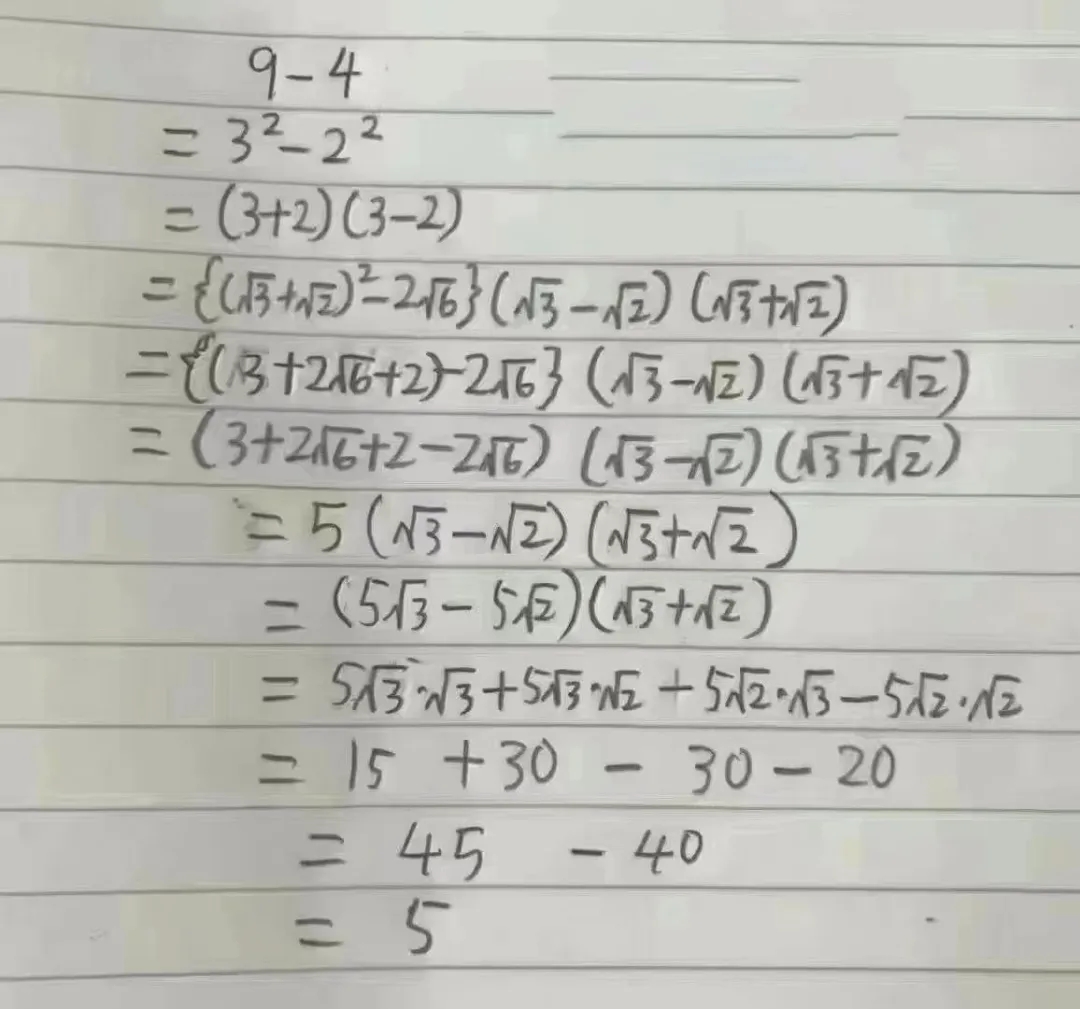 9-4
= 3²-2²
= (3+2)(3-2)
= {(√3+√2)²-2√6}(√3-√2)(√3+√2)
= {(3+2√6+2)-2√6}(√3-√2)(√3+√2)
= (3+2√6+2-2√6)(√3-√2)(√3+√2)
= 5(√3-√2)(√3+√2)
= (5√3-5√2)(√3+√2)
= 5√3·√3+5√3·√2+5√2·√3-5√2·√2
= 15+30-30-20
= 45-40
= 5